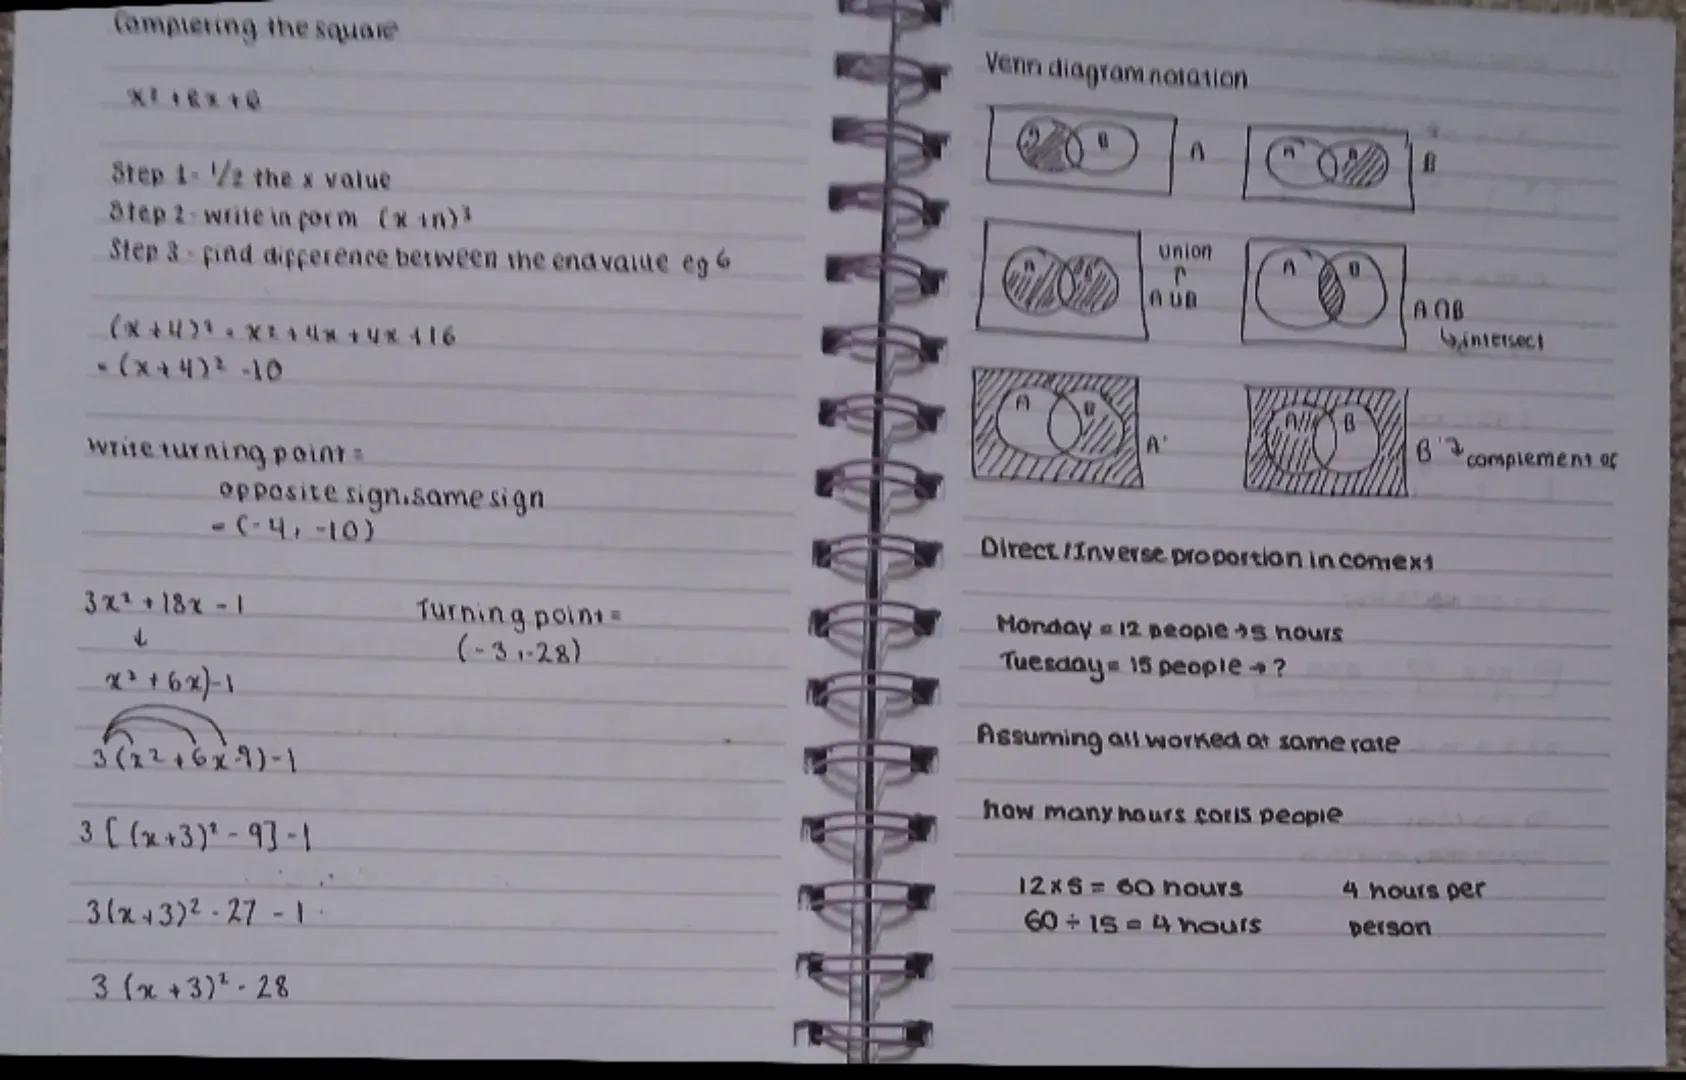 Completing the square
x² + 8x + 6
Step 1 - 1/2 the x value
Step 2 - write in form (x + n)²
Step 3 - find difference between the end value eg 6
(x + 4)² = x² + 4x + 4x + 16
= (x + 4)² - 10
write turning point =
opposite sign, same sign
= (-4, -10)
3x² + 18x - 1
↓
x² + 6x) - 1
3(x² + 6x - 9) - 1
3 [(x + 3)² - 9] - 1
3(x + 3)² - 27 - 1
3 (x + 3)² - 28
Turning point =
(-3, -28)
Venn diagram notation
A B A
A B B
A B union
A ∪ B
A B A ∩ B
↳ intersect
A B A'
A B B' complement of
Direct / Inverse proportion in context
Monday = 12 people → 5 hours
Tuesday = 15 people → ?
Assuming all worked at same rate
how many hours for 15 people
12 x 5 = 60 hours
60 ÷ 15 = 4 hours
4 hours per
person